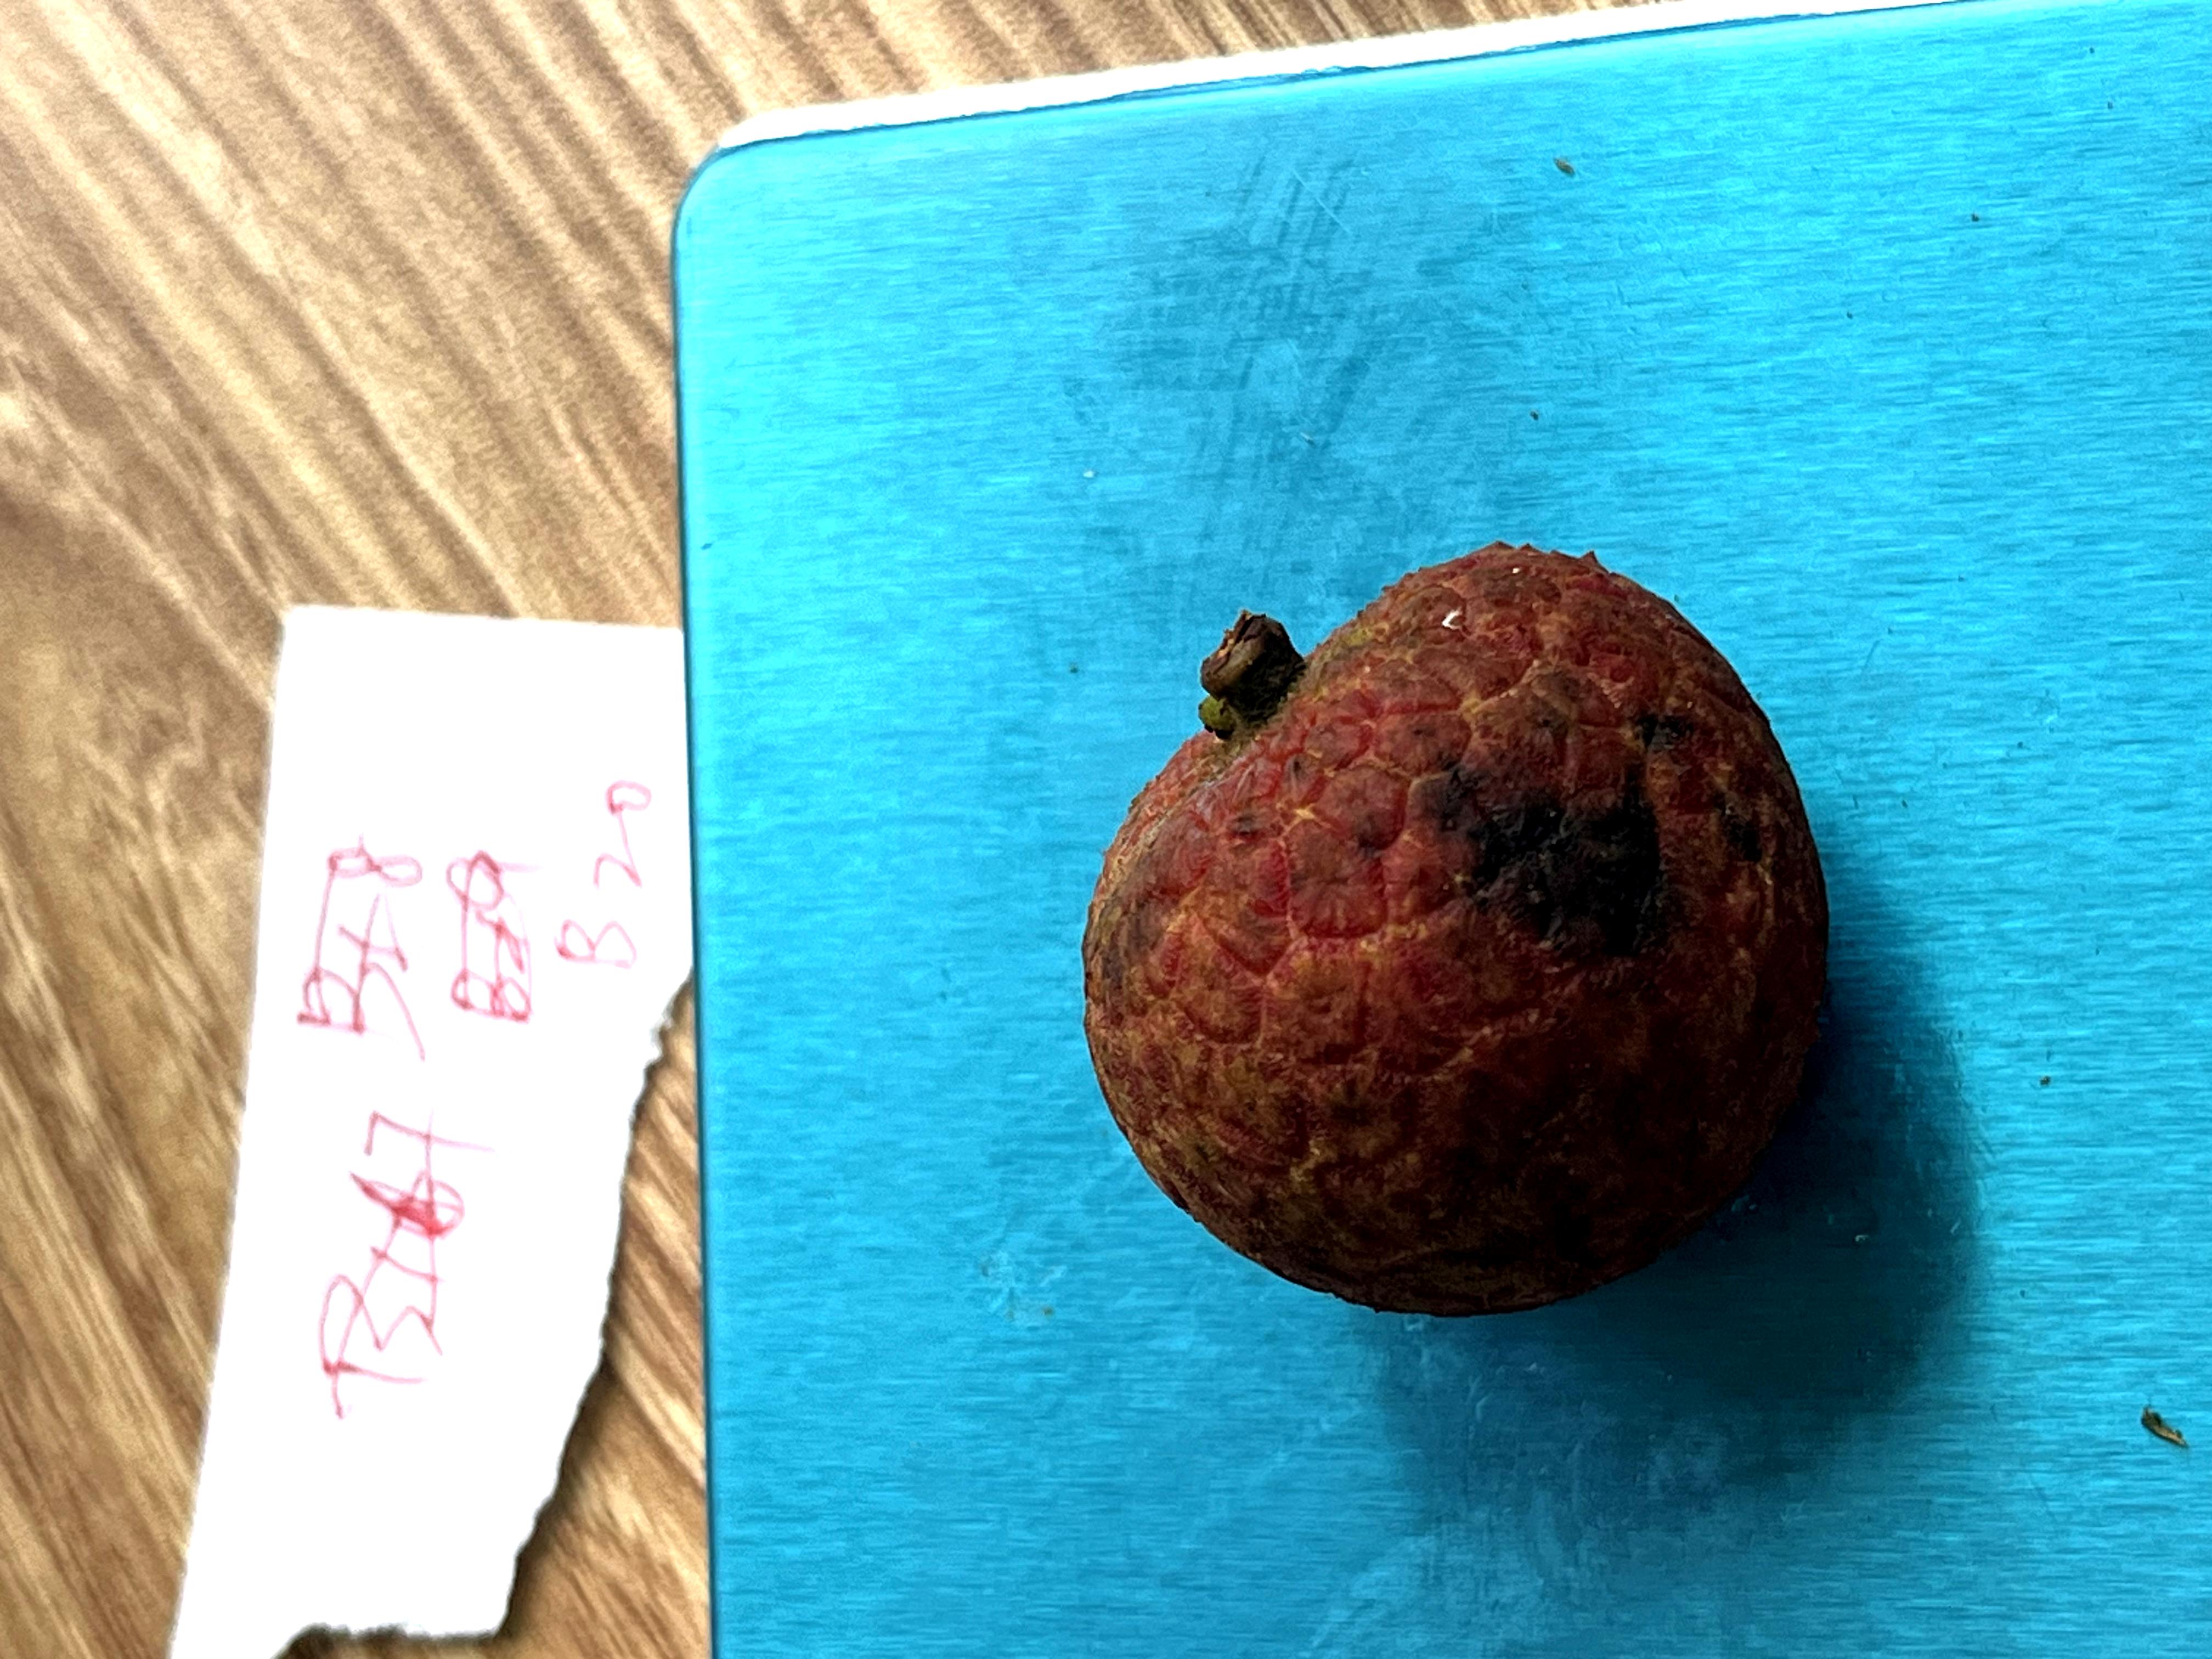 B17
B18
B19
B20